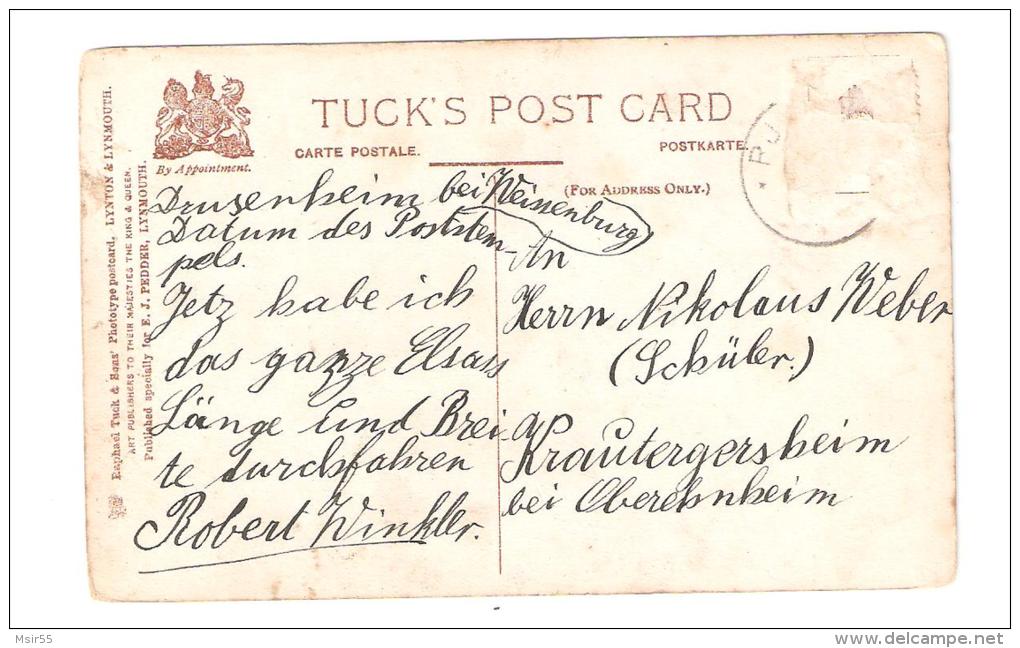 TUCK'S POST CARD
CARTE POSTALE.
POSTKARTE.
By Appointment.
(FOR ADDRESS ONLY.)
Raphael Tuck & Sons' Phototype postcard, LYNTON & LYNMOUTH.
ART PUBLISHERS TO THEIR MAJESTIES THE KING & QUEEN.
Published specially for E. J. PEDDER, LYNMOUTH.
Drusenheim bei Weissenburg
Datum des Poststem-
pels.
Jetz habe ich
das ganze Elsass
Länge und Brei-
te durchfahren
Robert Winkler.
An
Herrn Nikolaus Weber
(Schüler.)
Krautergersheim
bei Oberehnheim
Msir55
www.delcampe.net